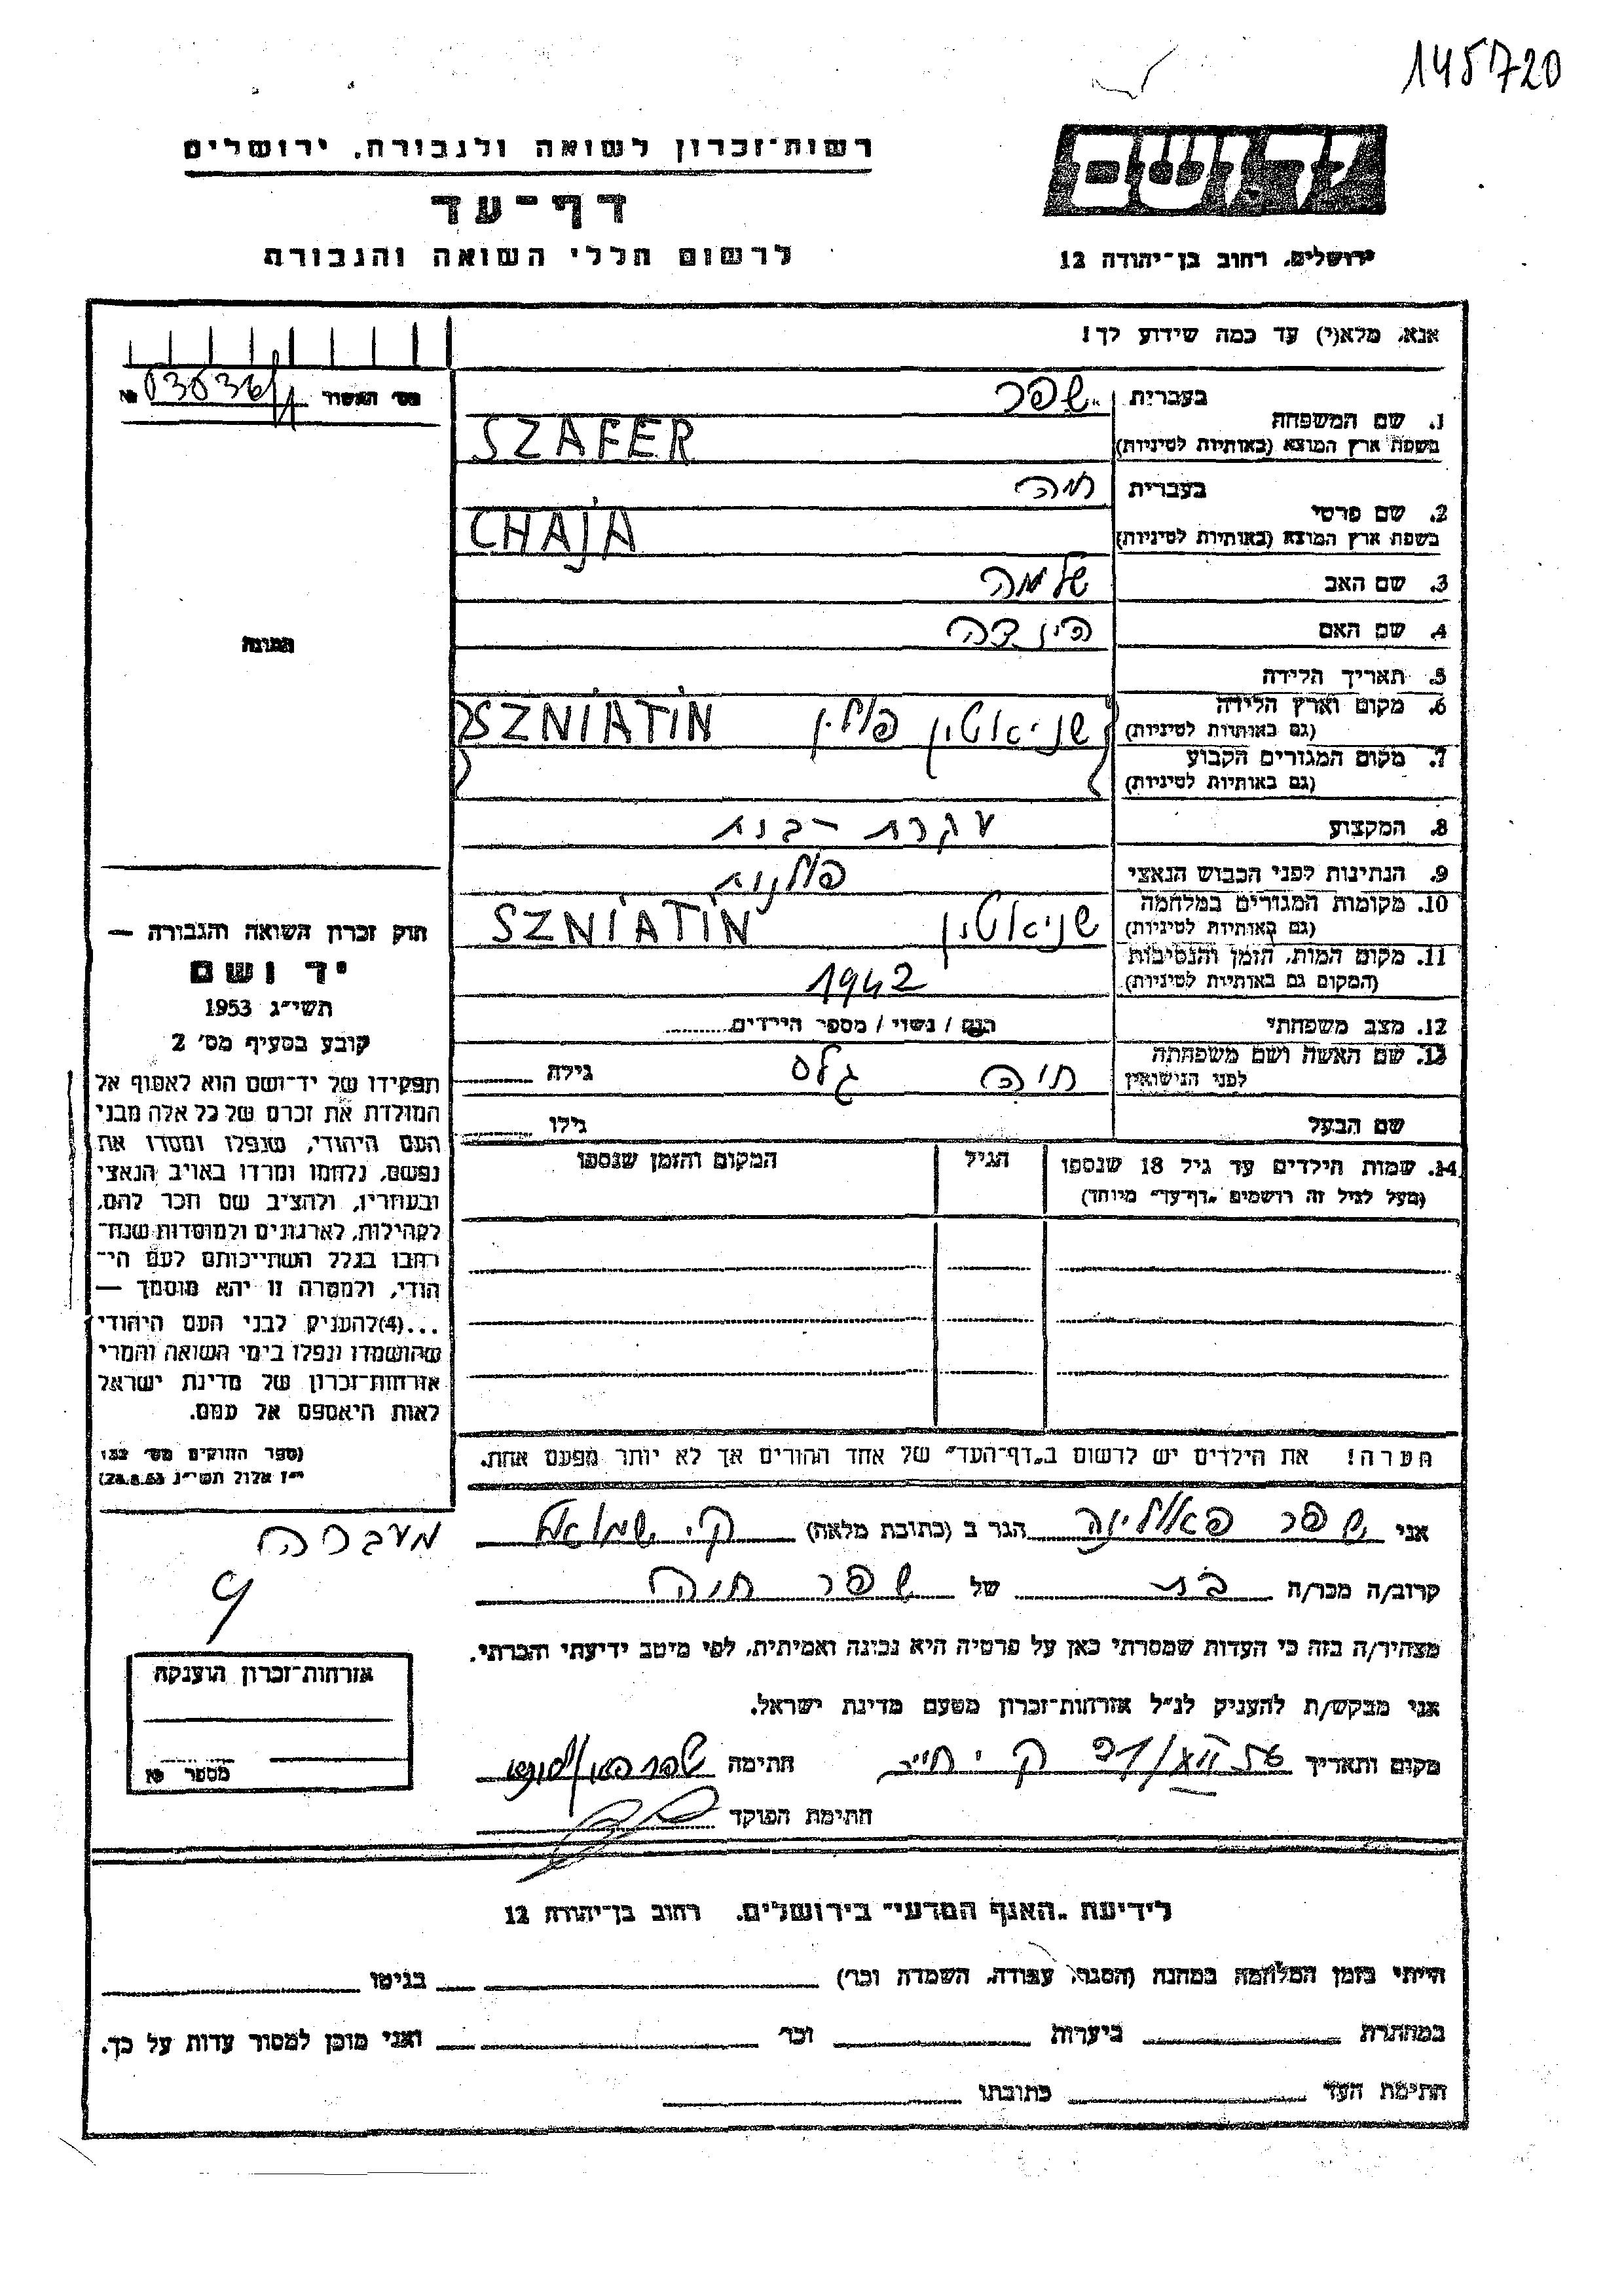 145720
רשות־זכרון לשואה ולגבורה, ירושלים
יד ושם
דף־עד
לרשום חללי השואה והגבורה
ירושלים, רחוב בן־יהודה 12
אנא, מלא(י) עד כמה שידוע לך!
מס׳ האשור №
בעברית שפר
1. שם המשפחה
בשפת ארץ המוצא (באותיות לטיניות) SZAFER
בעברית חיה
2. שם פרטי
בשפת ארץ המוצא (באותיות לטיניות) CHAJA
3. שם האב שלמה
4. שם האם הינדה
5. תאריך הלידה
6. מקום וארץ הלידה שניאטין פולין SZNIATIN
(גם באותיות לטיניות)
7. מקום המגורים הקבוע
(גם באותיות לטיניות)
8. המקצוע עקרת-בית
9. הנתינות לפני הכבוש הנאצי פולנית
10. מקומות המגורים במלחמה שניאטין SZNIATIN
(גם באותיות לטיניות)
11. מקום המות, הזמן והנסיבות 1942
(המקום גם באותיות לטיניות)
12. מצב משפחתי רווק / נשוי / מספר הילדים
13. שם האשה ושם משפחתה חיה גלס גילה
לפני הנישואין
שם הבעל גילו
14. שמות הילדים עד גיל 18 שנספו הגיל המקום והזמן שנספו
(מעל לגיל זה רושמים „דף־עד״ מיוחד)
הערה! את הילדים יש לרשום ב„דף־העד״ של אחד ההורים אך לא יותר מפעם אחת.
תמונה
חוק זכרון השואה והגבורה —
יד ושם
תשי״ג 1953
קובע בסעיף מס׳ 2
תפקידו של יד־ושם הוא לאסוף אל
המולדת את זכרם של כל אלה מבני
העם היהודי, שנפלו ומסרו את
נפשם, נלחמו ומרדו באויב הנאצי
ובעוזריו, ולהציב שם וזכר להם,
לקהילות, לארגונים ולמוסדות שנח־
רבו בגלל השתייכותם לעם הי־
הודי, ולמטרה זו יהא מוסמך —
...(4)להעניק לבני העם היהודי
שהושמדו ונפלו בימי השואה והמרי
אזרחות־זכרון של מדינת ישראל
לאות היאספם אל עמם.
(ספר החוקים מס׳ 132
י״ז אלול תשי״ג 28.8.53)
אני שפר פאולינה הגר ב (כתובת מלאה) ק. שמואל
מעברה
קרוב/ה מכר/ה בת של שפר חיה
9
מצהיר/ה בזה כי העדות שמסרתי כאן על פרטיה היא נכונה ואמיתית, לפי מיטב ידיעתי והכרתי.
אני מבקש/ת להעניק לנ״ל אזרחות־זכרון מטעם מדינת ישראל.
מקום ותאריך חתימה
חתימת הפוקד
אזרחות־זכרון הוענקה
מספר №
לידיעת „האגף המדעי״ בירושלים, רחוב בן־יהודה 12
הייתי בזמן המלחמה במחנה (הסגר, עבודה, השמדה וכו׳) בגיטו
במחתרת ביערות וכו׳ ואני מוכן למסור עדות על כך.
חתימת העד כתובתו